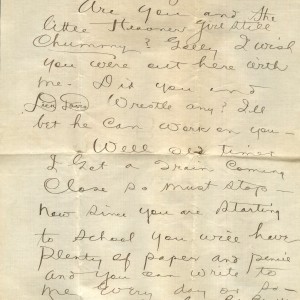 Are you and the
little girl still
Chummy? Golly I wish
you were out here with
me. Did you and
Wrestle any? I'll
bet he can work on you —
Well old timer
I got a train coming
Close so must stop —
now since you are starting
to school you will have
Plenty of paper and
and you can write to
me every day or so —